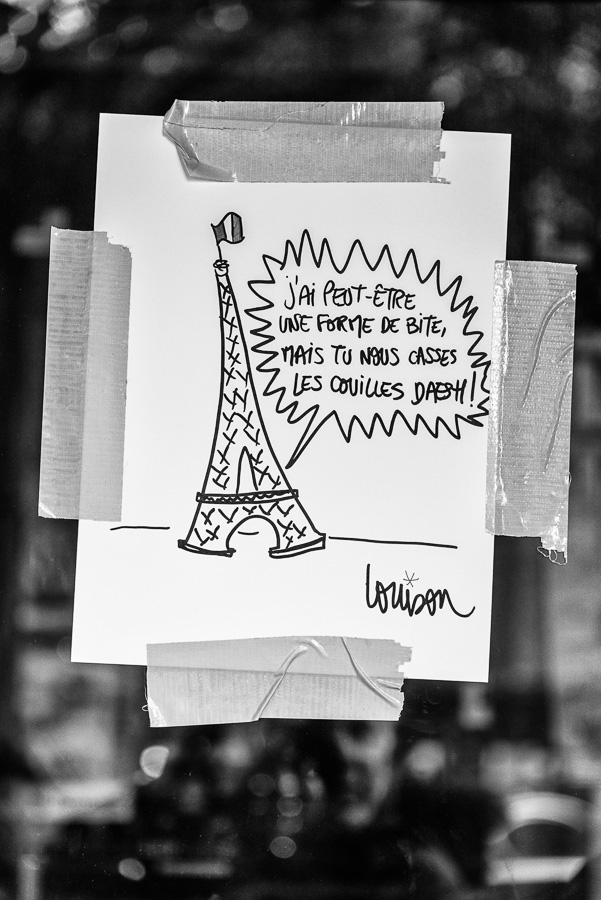 J'AI PEUT-ÊTRE
UNE FORME DE BITE,
MAIS TU NOUS CASSES
LES COUILLES DAESH!
Louison